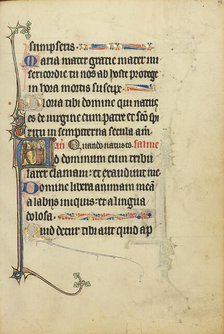 sumpseris.
Maria mater gratie mater mi
sericordie tu nos ab hoste protege
in hora mortis suscipe.
Gloria tibi domine qui natus
es de virgine cum patre et sancto spi
ritu in sempiterna secula amen.
an. Quando natus es. psalmus
Ad dominum cum tribu
larer clamavi: et exaudivit me
Domine libera animam meam
a labijs iniquis: et a lingua
dolosa.
Quid detur tibi aut quid ap